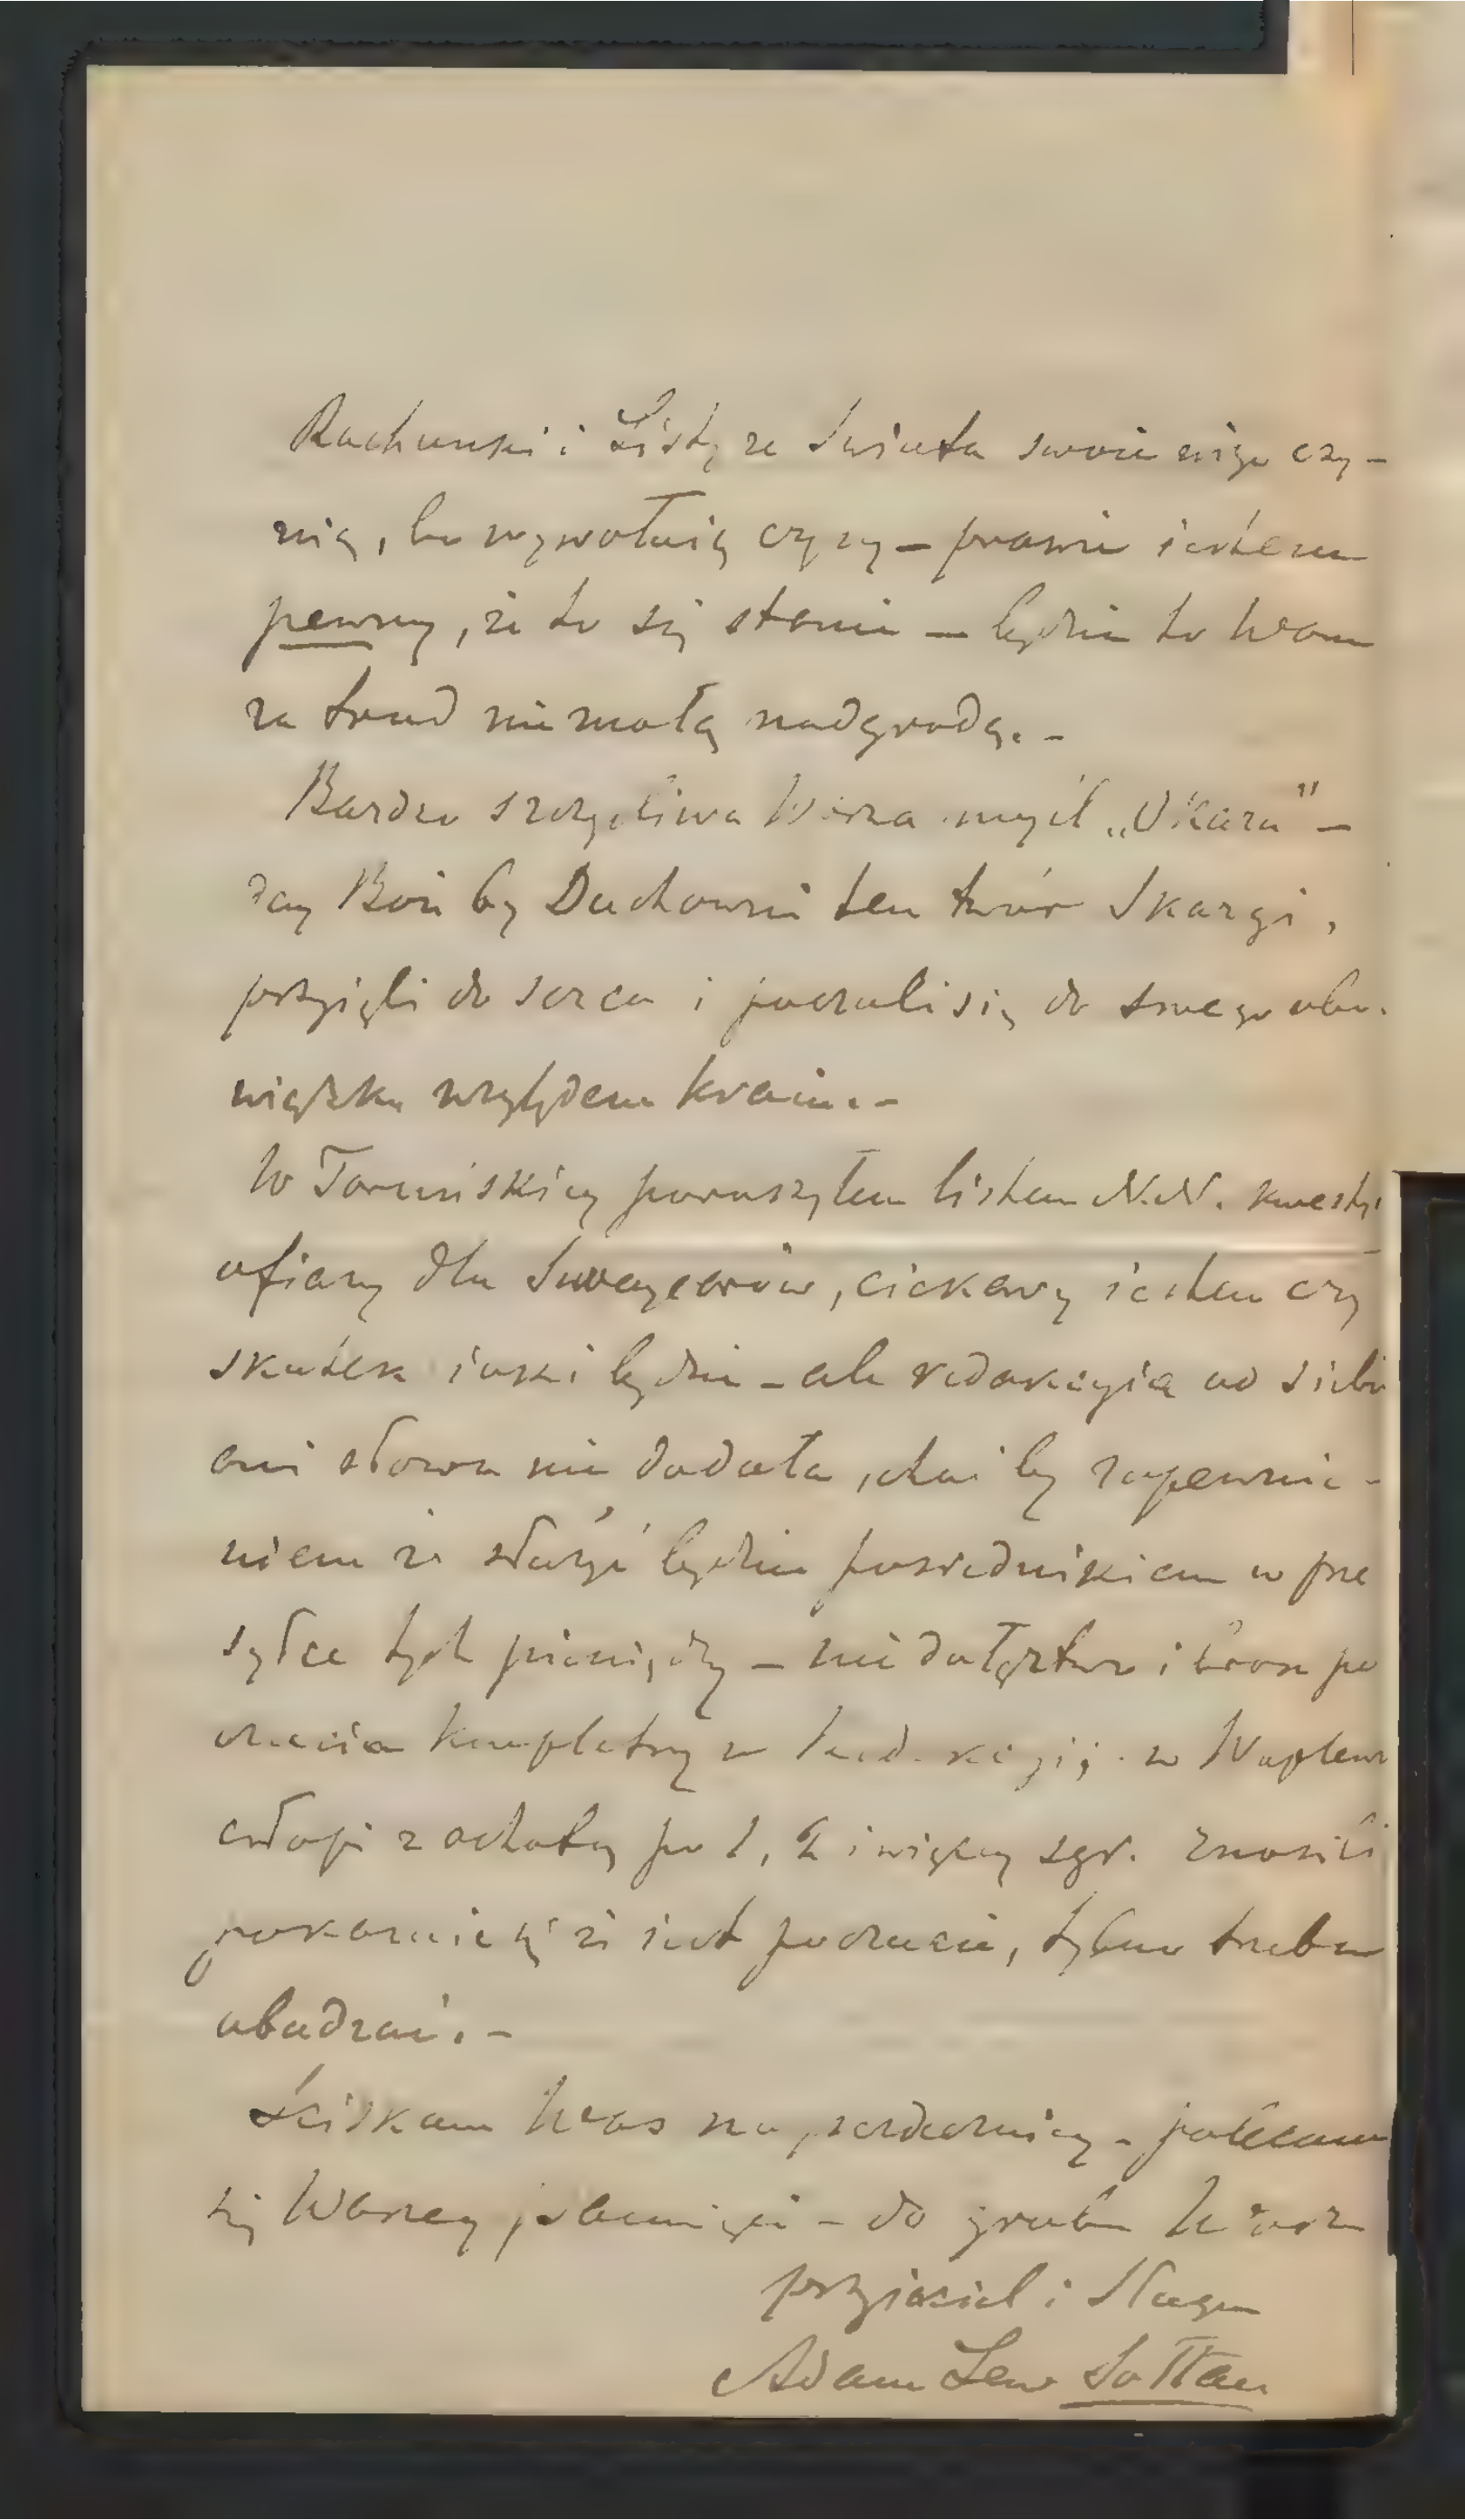 Rachunki i Listy ze świata swoie niego czy-
nią, bo wywołuią czyny – prawie iestem
pewny, że to się stanie – będzie to Wam
za trud nie małą nadgrodą. –
Bardzo szczęśliwa Wasza myśl „Okaza" –
day Boże by Duchowni ten twór Skargi,
przyięli do serca i poczuli się do swego obo-
wiązku względem kraiu. –
W Toruńskiey poruszyłem listem N.N. kwesty
ofiary dla Szwaycarów, ciekawy iestem czy
skutek iaki będzie – ale redakcyia od siebie
ani słowa nie dodała, choć by zapewnie-
niem że służyć będzie pośrednikiem w prze
syłce tych pieniędzy – niedołęztwo i brak po
czucia kompletny w redakcyij. w Waplewie
chłopi z ochotą po 1, 2 i więcey sgr. znosili
pokazuie się że iest poczucie, tylko trzeba
obudzać. –
Ściskam Was nayserdeczniey – polecam
się Waszey pamięci – do grobu Wasz
przyiaciel i sługa
Adam Lew Sołtan